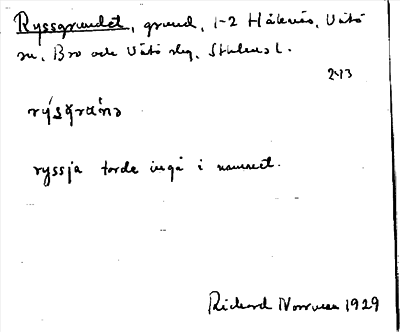 Ryssgrundet, grund, 1-2 Håknäs, Vätö
sn, Bro och Vätö skg, Sthlms l.
243
ryssja torde ingå i namnet.
Rickard Norrman 1929